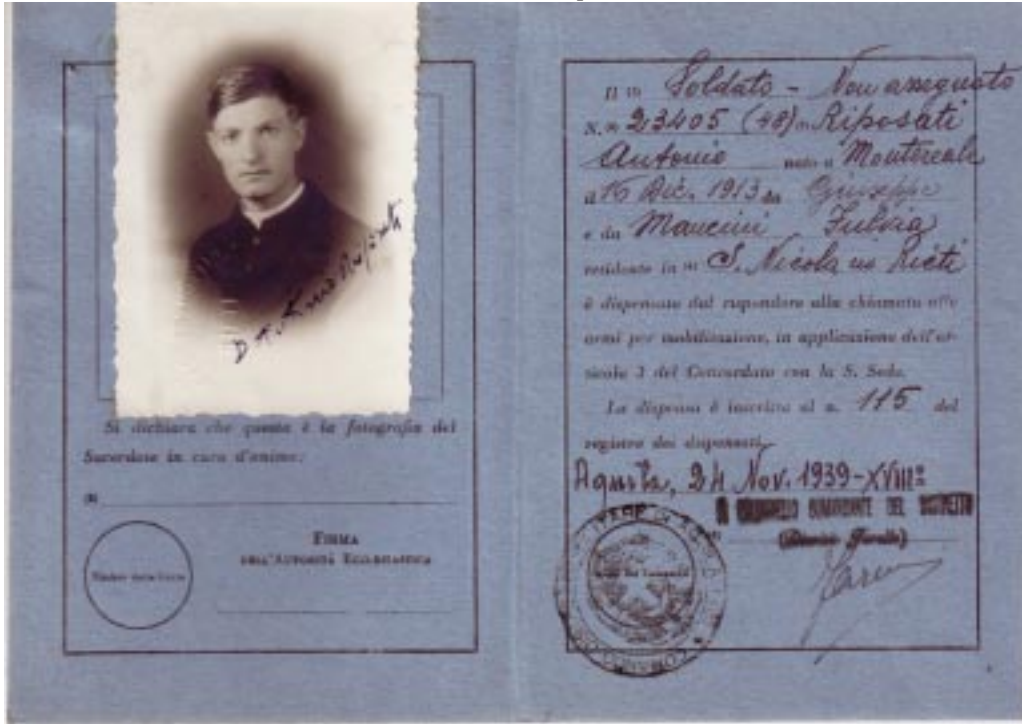 D. Antonio Riposati
Si dichiara che questa è la fotografia del
Sacerdote in cura d'anime:
FIRMA
DELL'AUTORITÀ ECCLESIASTICA
Il Soldato - Non assegnato
N. 23405 (48) Riposati
Antonio nato a Montereale
il 16 Dic. 1913 da Giuseppe
e da Mancini Fulvia
residente in S. Nicola Rieti
è dispensato dal rispondere alla chiamata alle
armi per mobilitazione, in applicazione dell'ar-
ticolo 3 del Concordato con la S. Sede.
La dispensa è inscritta al n. 115 del
registro dei dispensati.
24 Nov. 1939-XVIII°
IL COLONNELLO COMANDANTE DEL DISTRETTO